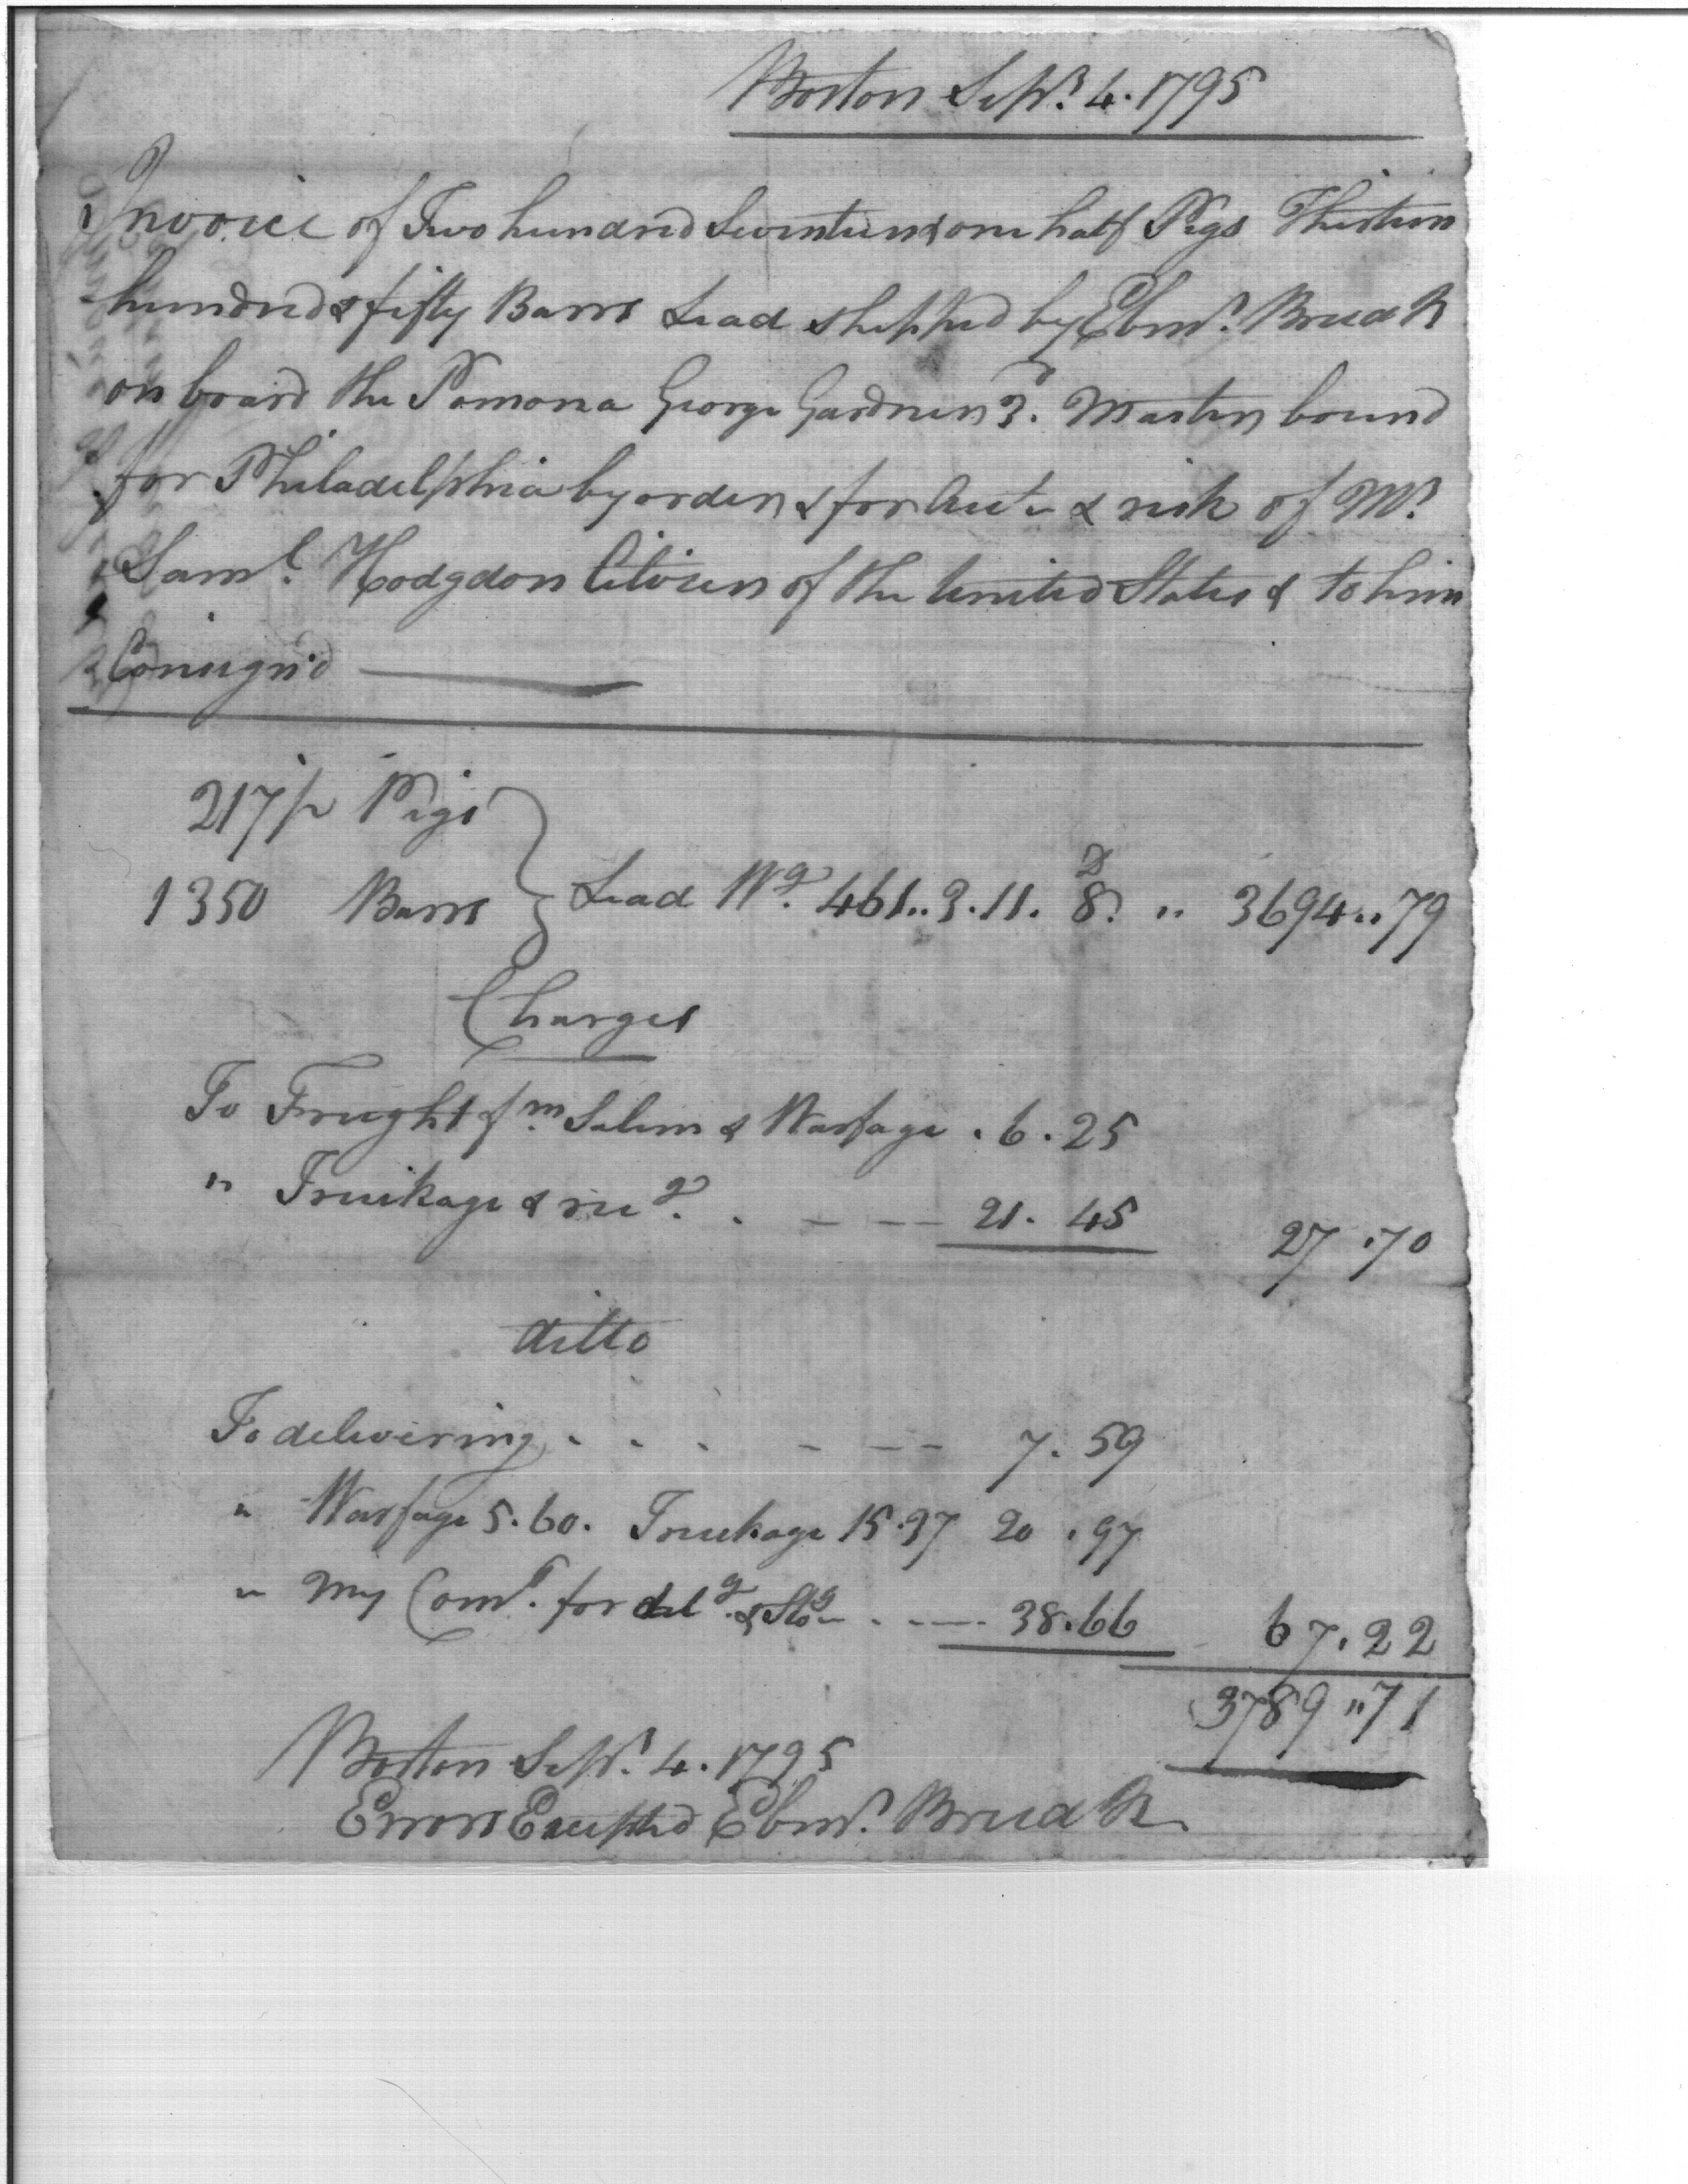 Boston Sepr. 4. 1795
Invoice of Two hundred Seventeen & one half Pigs Thirteen
hundred & fifty Barrs Lead shipped by Ebenr. Breed
on board the Pomona George Gardner 3d. Master bound
for Philadelphia by order & for Acct. & risk of Mr.
Saml. Hodgdon Citizen of the United States & to him
Consign'd
217 1/2 Pigs
1350 Barrs Lead Wg. 461..3.11. 8D. .. 3694..79
Charges
To Freight fm. Salem & Warfage . 6.25
" Truckage & recg. . - - - 21.45 27.70
ditto
To delivering . . . - - - 7.59
" Warfage 5.60. Truckage 15.37 20.97
" My Comn. for delg. & Stog - - - 38.66 67.22
3789..71
Boston Sepr. 4. 1795
Errors Excepted Ebenr. Breed